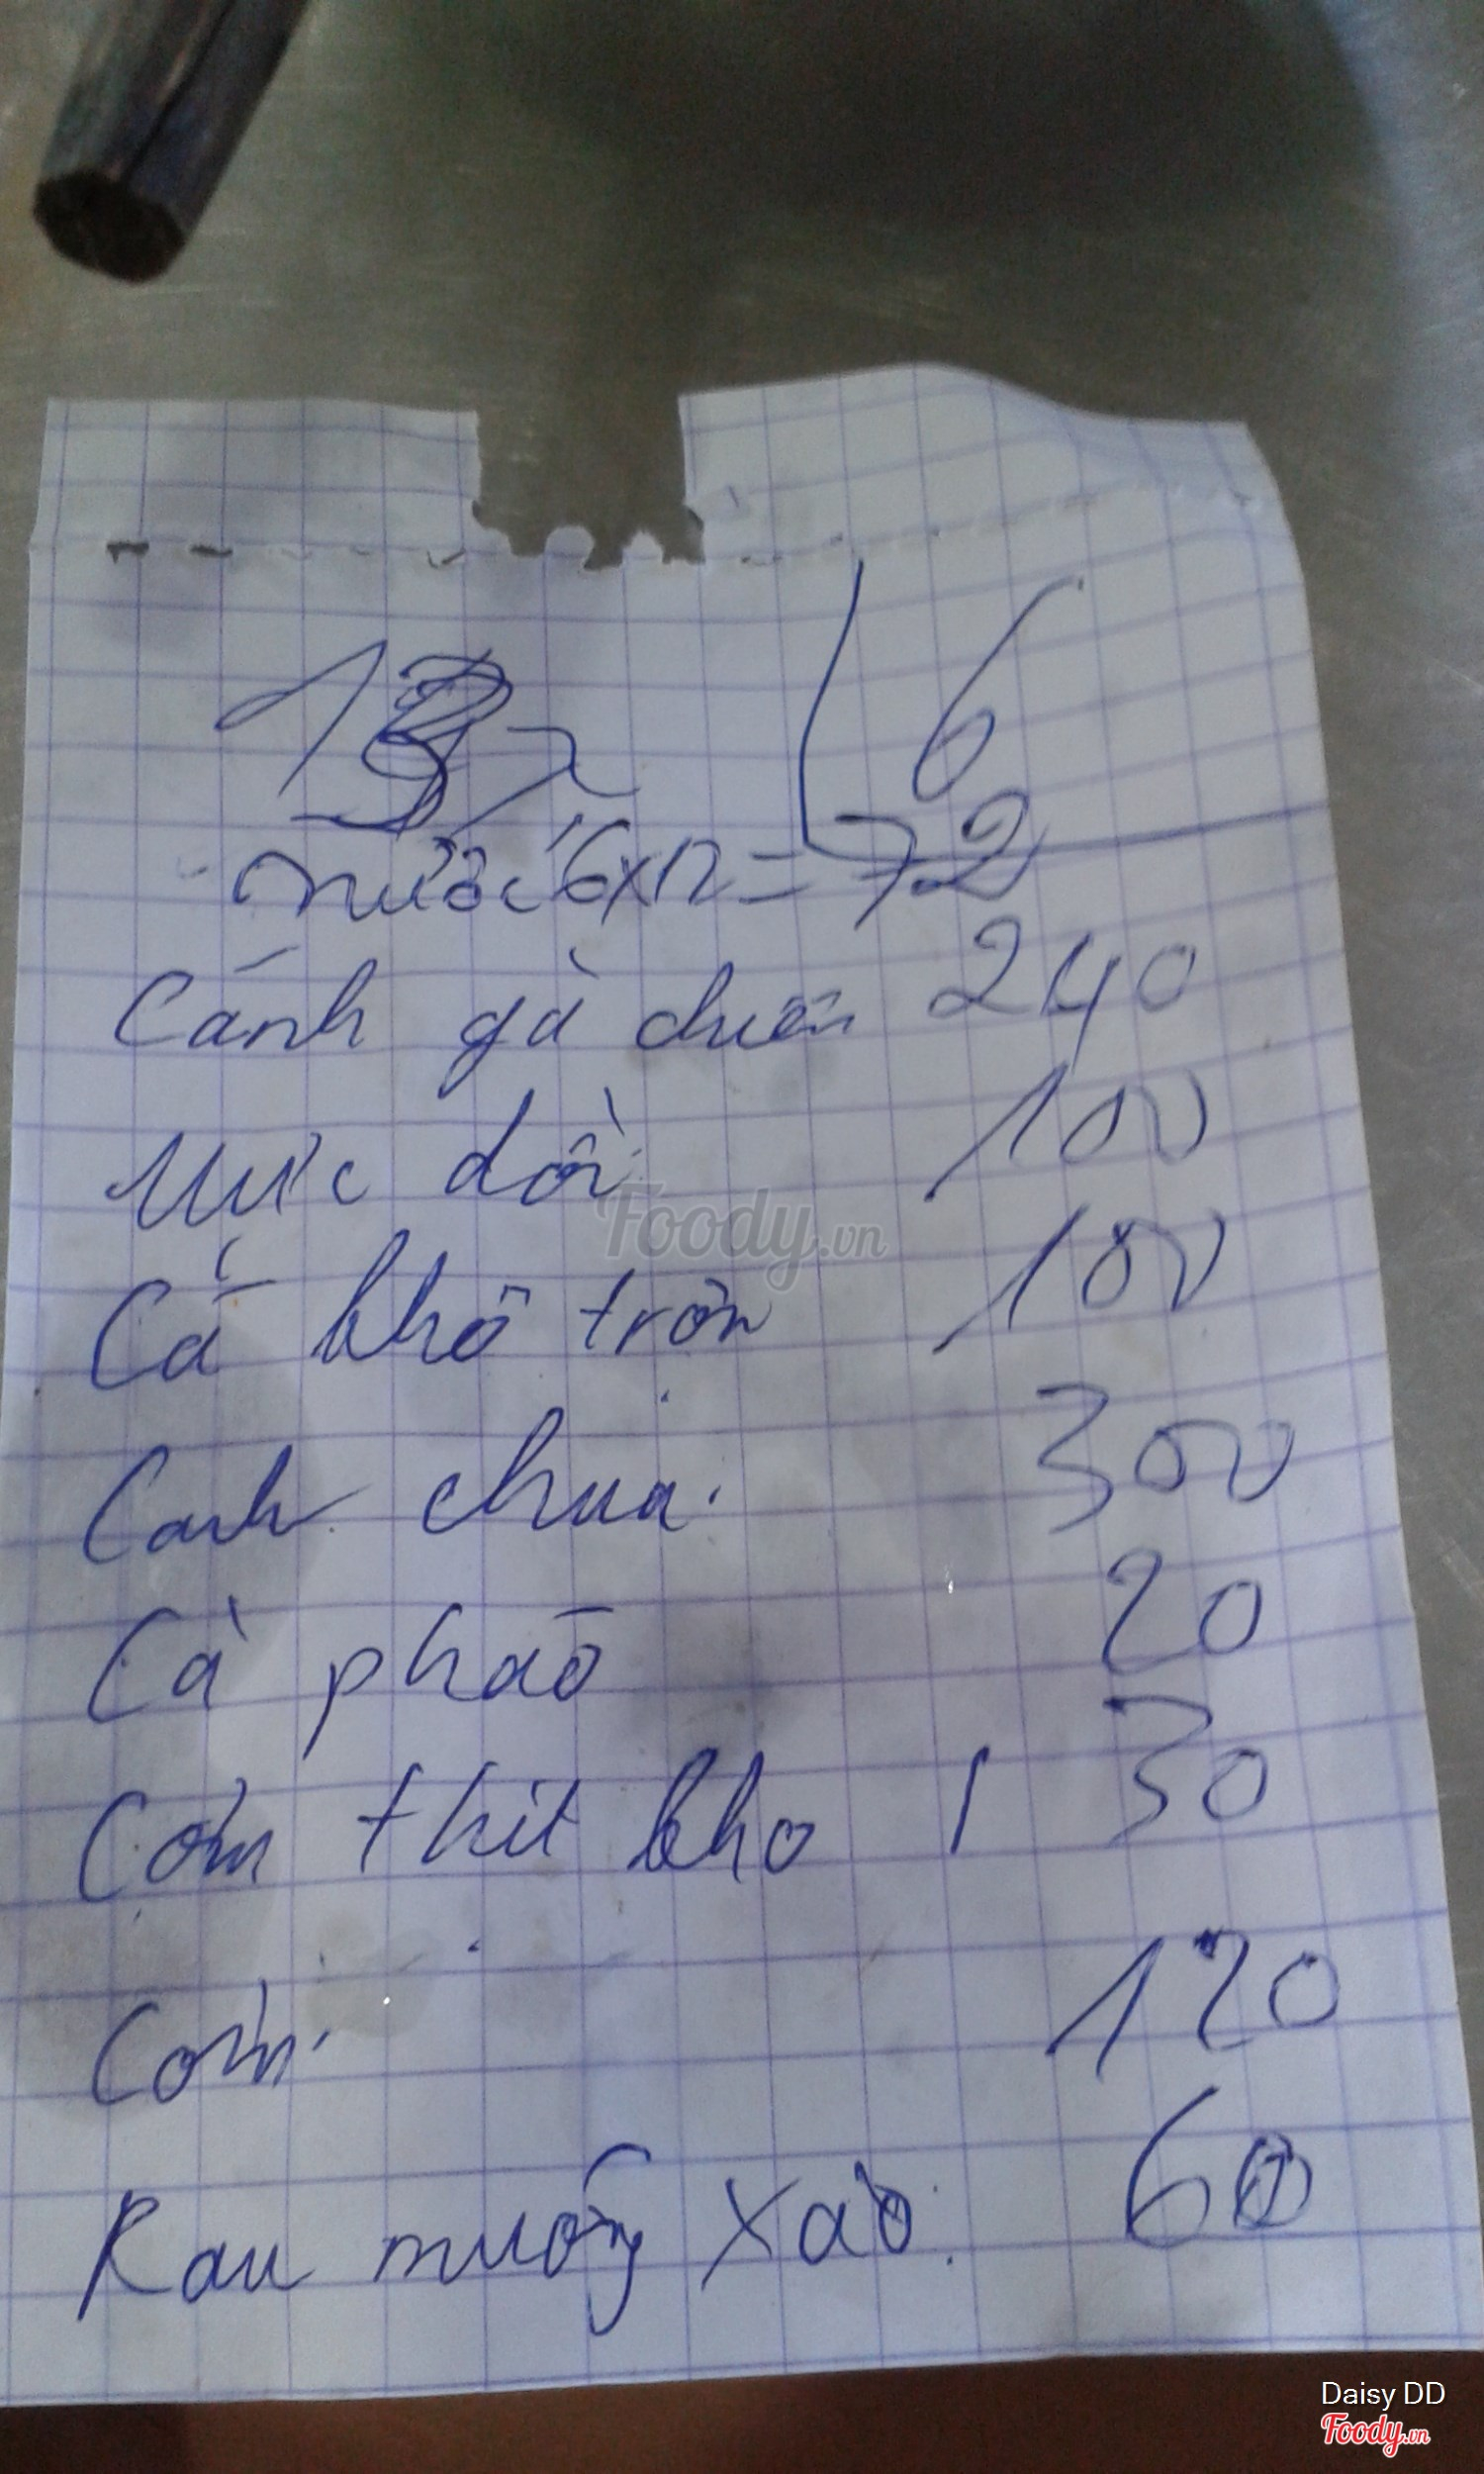 16
nước 6x12 = 72
Cánh gà chiên 240
Mực dồi 100
Cá khô trộn 100
Canh chua 300
Cà pháo 20
Cơm thịt kho 1 30
Cơm 120
Rau muống xào 60
Foody.vn
Daisy DD
Foody.vn